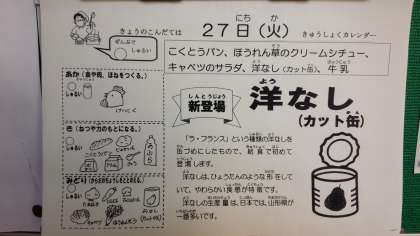 きょうのこんだては
27日(火)
にち
か
きゅうしょくカレンダー
ぜんぶで
しゅるい
こくとうパン、ほうれん草のクリームシチュー、
キャベツのサラダ、洋なし(カット缶)、牛乳
あか(血や肉、ほねをつくる。)
しゅるい
けいにく
き(ねつや力のもとになる。)
しゅるい
こくとうパン
じゃがいも
あぶら
みどり
しゅるい
たまねぎ
ほうれんそう
しんとうじょう
新登場
よう
洋なし
(カット缶)
「ラ・フランス」という種類の洋なしを
缶づめにしたもので、給食で初めて
登場します。
洋なしは、ひょうたんのような形をして
いて、やわらかい食感が特徴です。
洋なしの生産量は、日本では、山形県が
一番多いです。